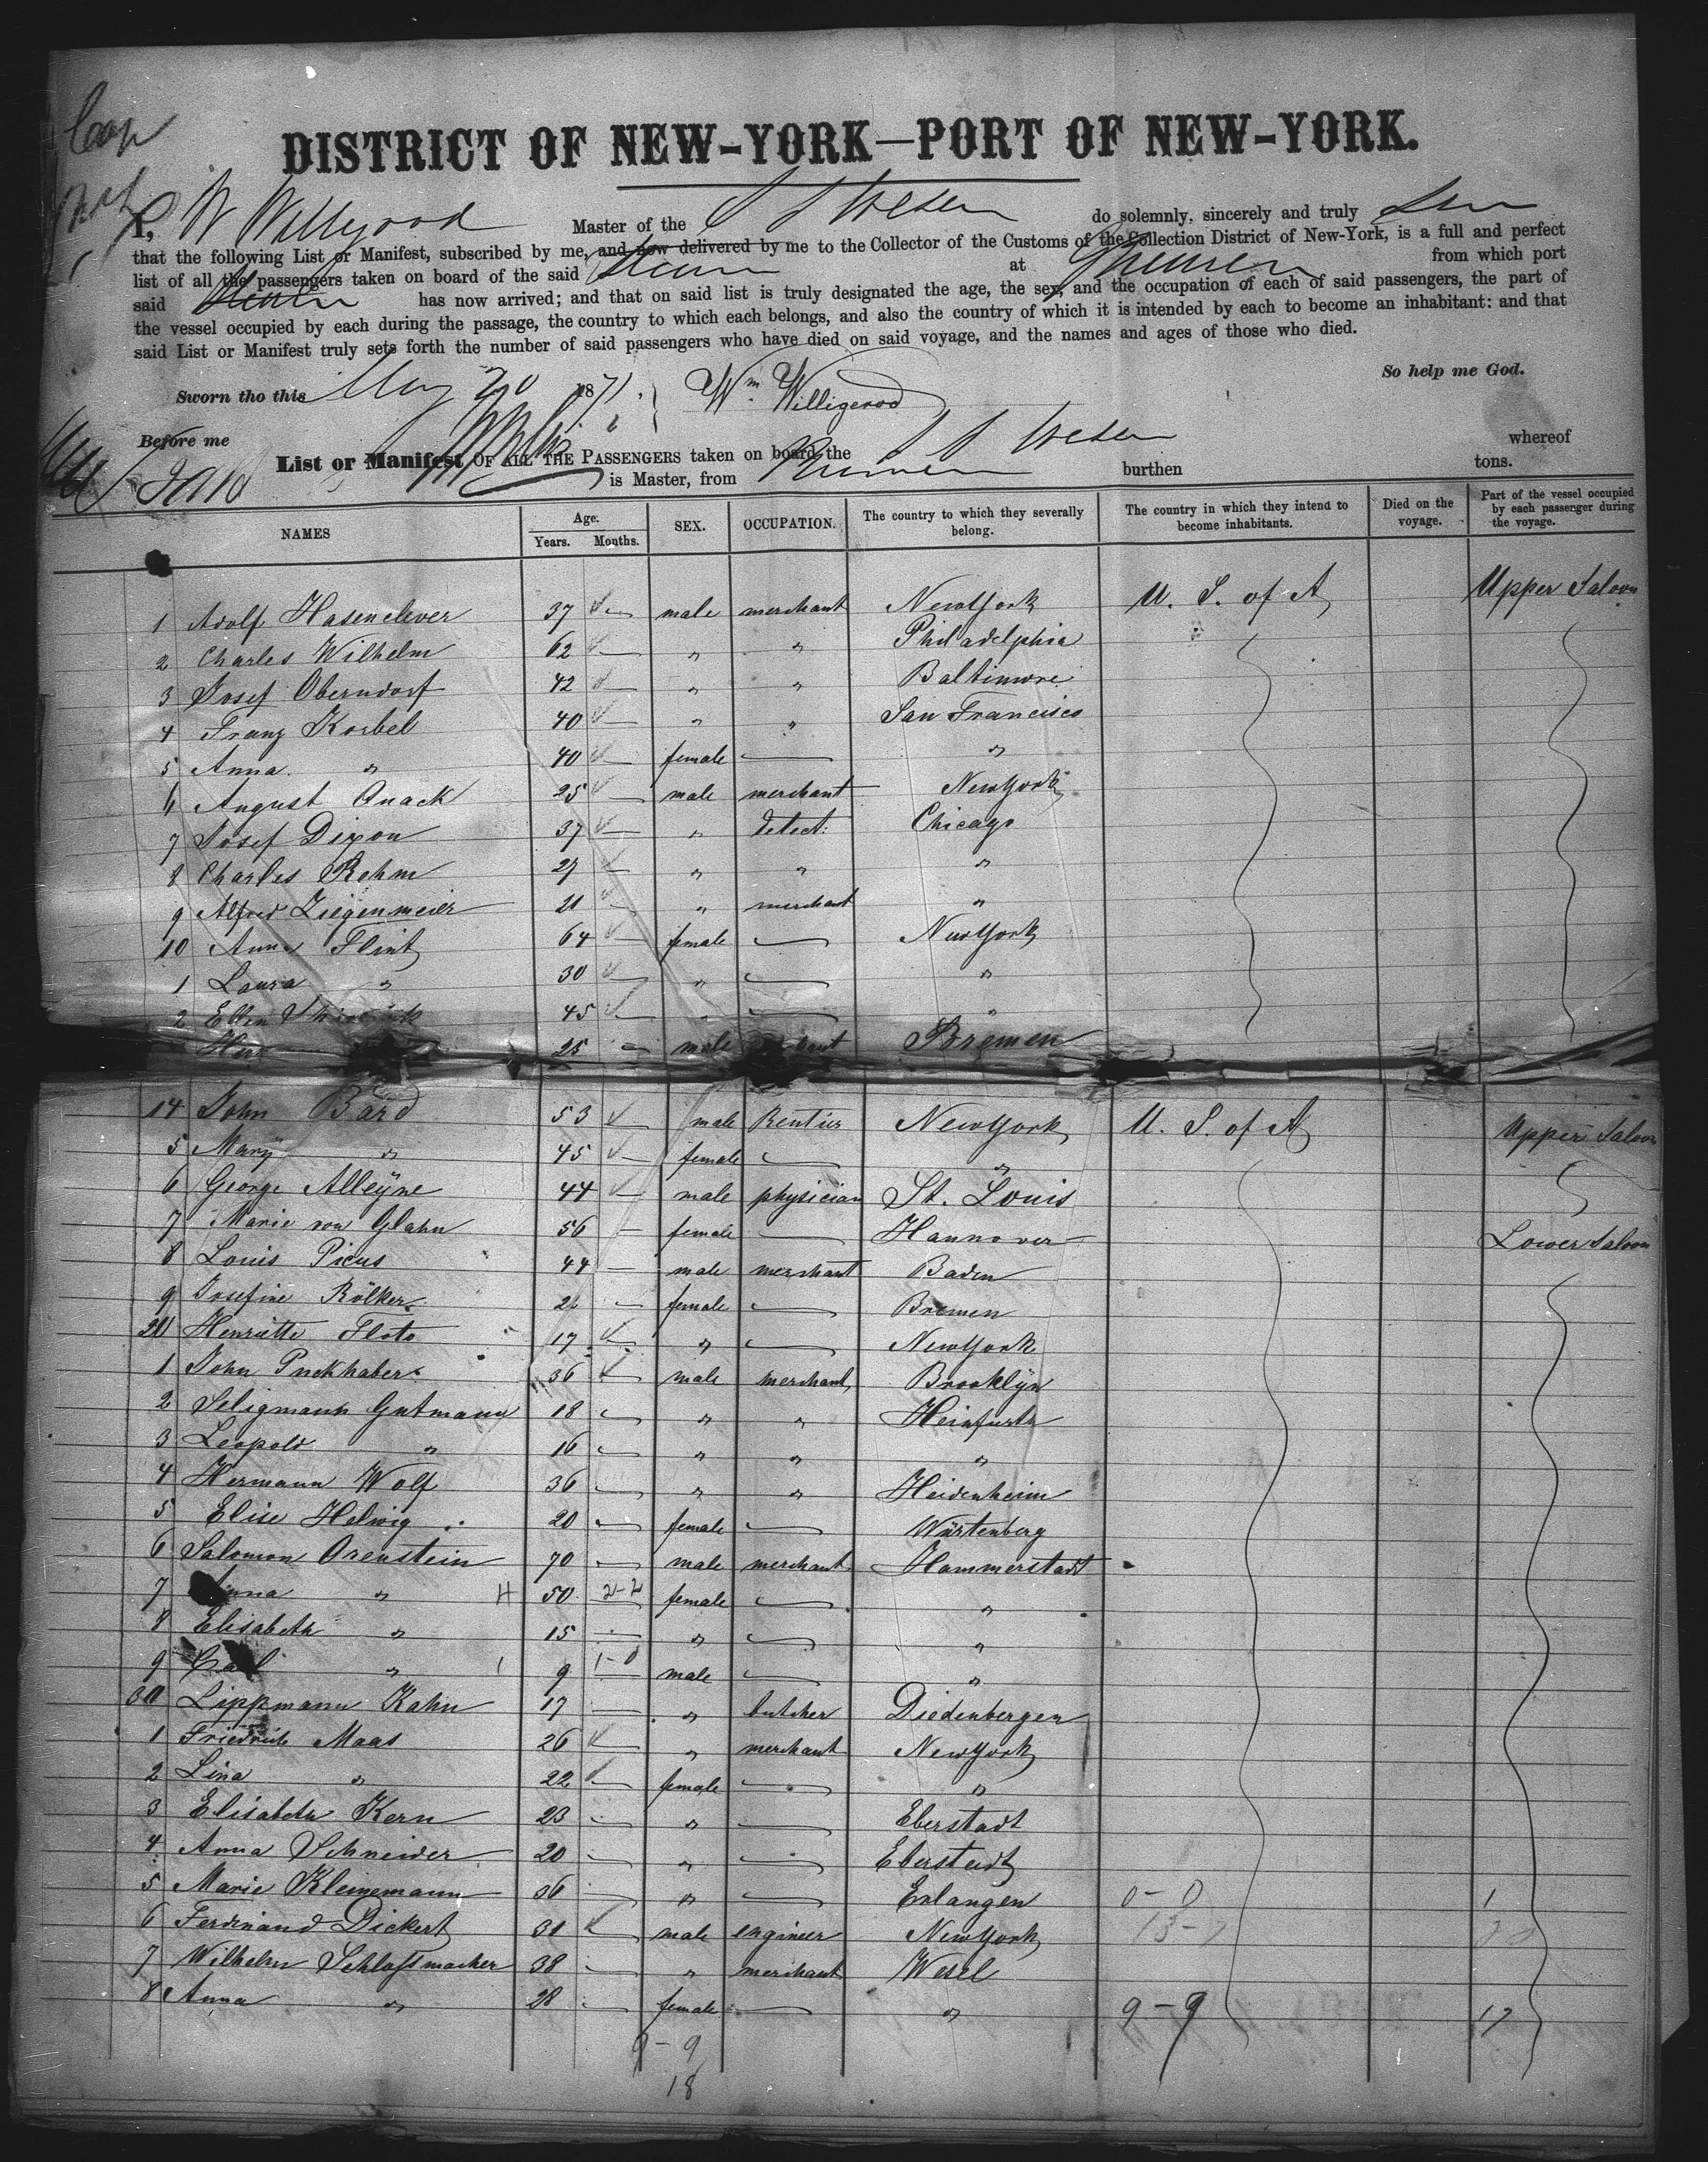 DISTRICT OF NEW-YORK—PORT OF NEW-YORK.
I, W Willigerod Master of the S S Weser do solemnly, sincerely and truly
that the following List or Manifest, subscribed by me, and now delivered by me to the Collector of the Customs of the Collection District of New-York, is a full and perfect
list of all the passengers taken on board of the said Steamer at Bremen from which port
said Steamer has now arrived; and that on said list is truly designated the age, the sex, and the occupation of each of said passengers, the part of
the vessel occupied by each during the passage, the country to which each belongs, and also the country of which it is intended by each to become an inhabitant: and that
said List or Manifest truly sets forth the number of said passengers who have died on said voyage, and the names and ages of those who died.
So help me God.
Sworn tho this May 20 1871. Wm. Willigerod
Before me
List or Manifest OF ALL THE PASSENGERS taken on board the S S Weser whereof
is Master, from Bremen burthen tons.
NAMES Age. Years. Months. SEX. OCCUPATION. The country to which they severally belong. The country in which they intend to become inhabitants. Died on the voyage. Part of the vessel occupied by each passenger during the voyage.
1 Adolf Hasenclever 37 — male merchant New York U. S. of A Upper Saloon
2 Charles Wilhelm 62 — " " Philadelphia
3 Josef Oberndorf 42 — " " Baltimore
4 Franz Korbel 40 — " " San Francisco
5 Anna " 40 — female — "
6 August Quack 25 — male merchant New York
7 Josef Dixon 37 — " detect: Chicago
8 Charles Rehm 27 — " " "
9 Alfred Ziegenmeier 21 — " merchant "
10 Anna Flint 64 — female — New York
1 Laura " 30 — " — "
2 Ellen 45 — " — "
25 — male Bremen
14 John Bard 53 — male Rentier New York U. S. of A Upper Saloon
5 Mary " 45 — female — "
6 George Alleÿne 44 — male physician St. Louis
7 Marie von Glahn 56 — female — Hannover Lower Saloon
8 Louis Picus 44 — male merchant Baden
9 Josefine Rölker 21 — female — Bremen
20 Henriette Floto 17 — " — New York
1 John Puckhaber 36 — male merchant Brooklÿn
2 Seligmann Gutmann 18 — " " Heinfurth
3 Leopold " 16 — " " "
4 Hermann Wolf 36 — " " Heidenheim
5 Elise Helwig 20 — female — Würtenberg
6 Salomon Orenstein 70 — male merchant Hammerstadt
7 Anna " 50 — female — "
8 Elisabeth " 15 — " — "
9 Carl " 9 — male — "
30 Lippmann Kahn 17 — " butcher Diedenbergen
1 Friedrich Maas 26 — " merchant New York
2 Lina " 22 — female — "
3 Elisabeth Kern 23 — " — Eberstadt
4 Anna Schneider 20 — " — Eberstadt
5 Marie Kleinemann 36 — " — Erlangen 0-0 1
6 Ferdinand Dickert 31 — male engineer New York
7 Wilhelm Schloßmacher 38 — " merchant Wesel
8 Anna " 28 — female — " 9-9 17
9-9
18